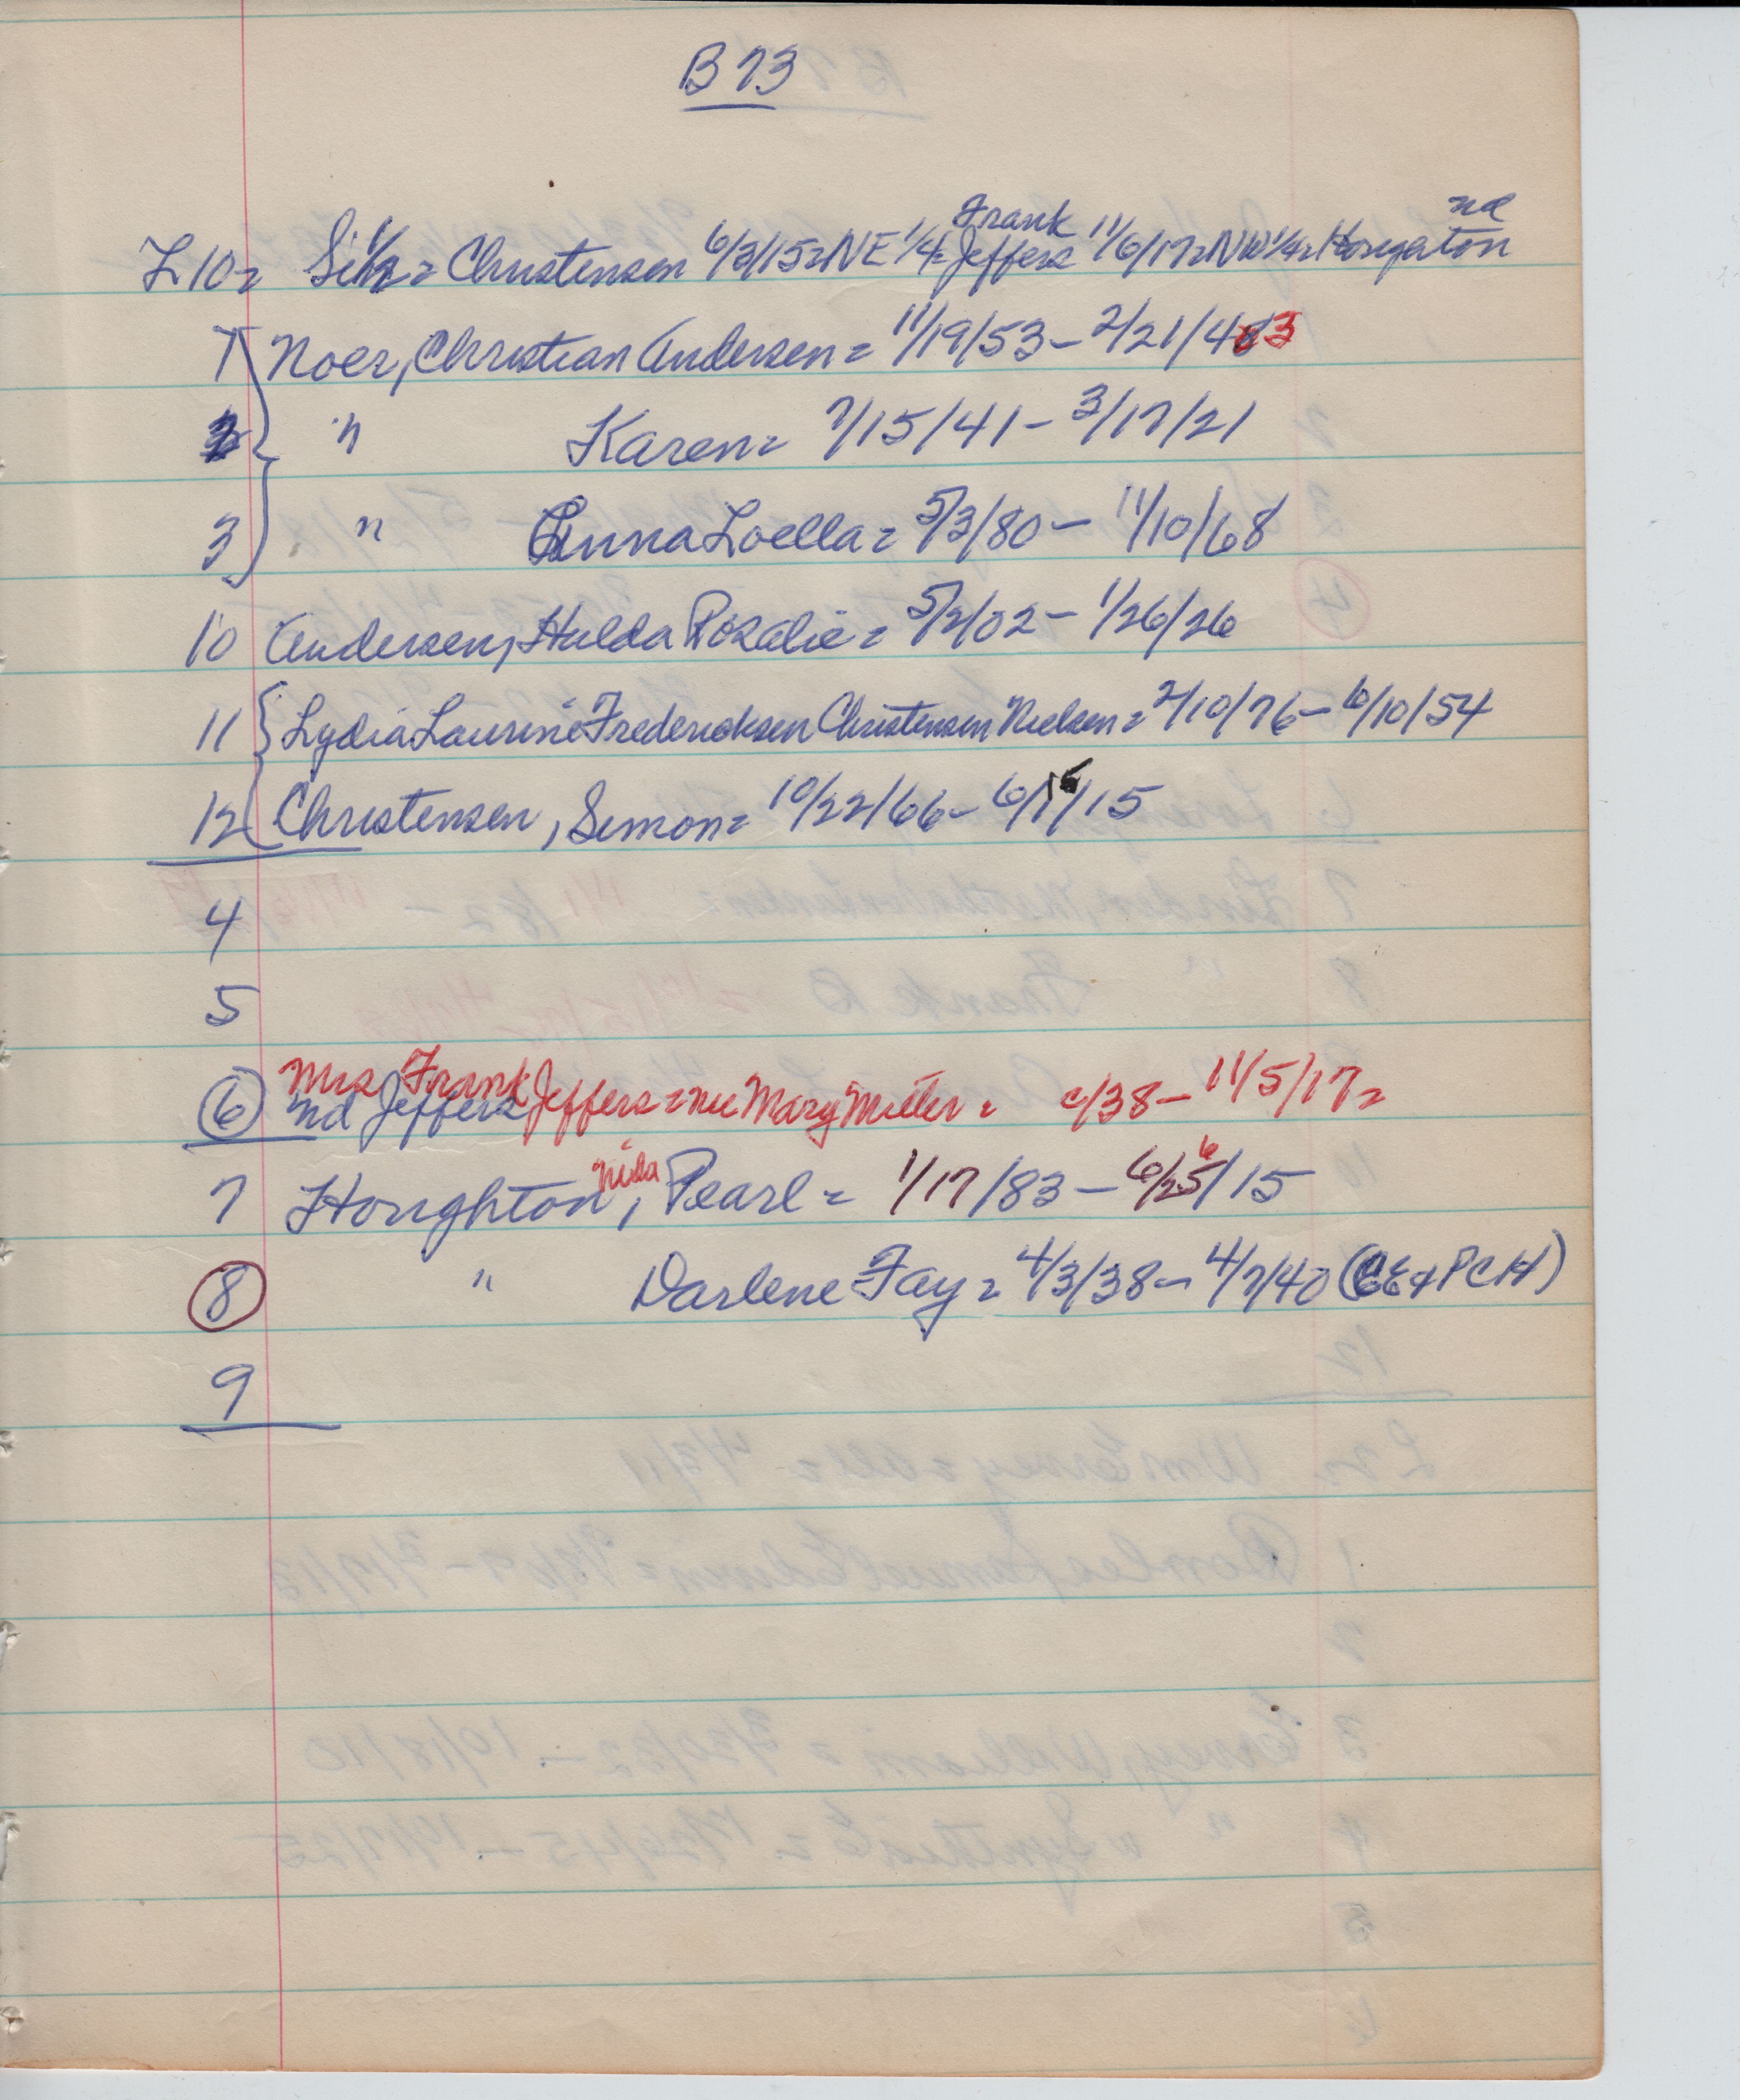 B 73
L 10= S 1/2 = Christensen 6/3/15=NE 1/4= Frank Jeffers 11/6/17=NW 1/4= Houghton nd
1 Noer, Christian Andersen = 11/19/53 – 2/21/43
2 " Karen = 7/15/41 – 3/17/21
3 " Anna Loella = 5/3/80 – 11/10/68
10 Andersen, Hulda Rosalie = 5/2/02 – 1/26/26
11 Lydia Laurine Fredericksen Christensen Nielsen = 2/10/76 – 6/10/54
12 Christensen, Simon = 10/22/66 – 6/1/15
4
5
6 Mrs Frank Jeffers = nee Mary Miller = c/38 – 11/5/17=
nd Jeffers
7 Houghton, Nida Pearl = 1/17/83 – 6/25/15
8 " Darlene Fay = 4/3/38 – 4/7/40 (CE + PCH)
9